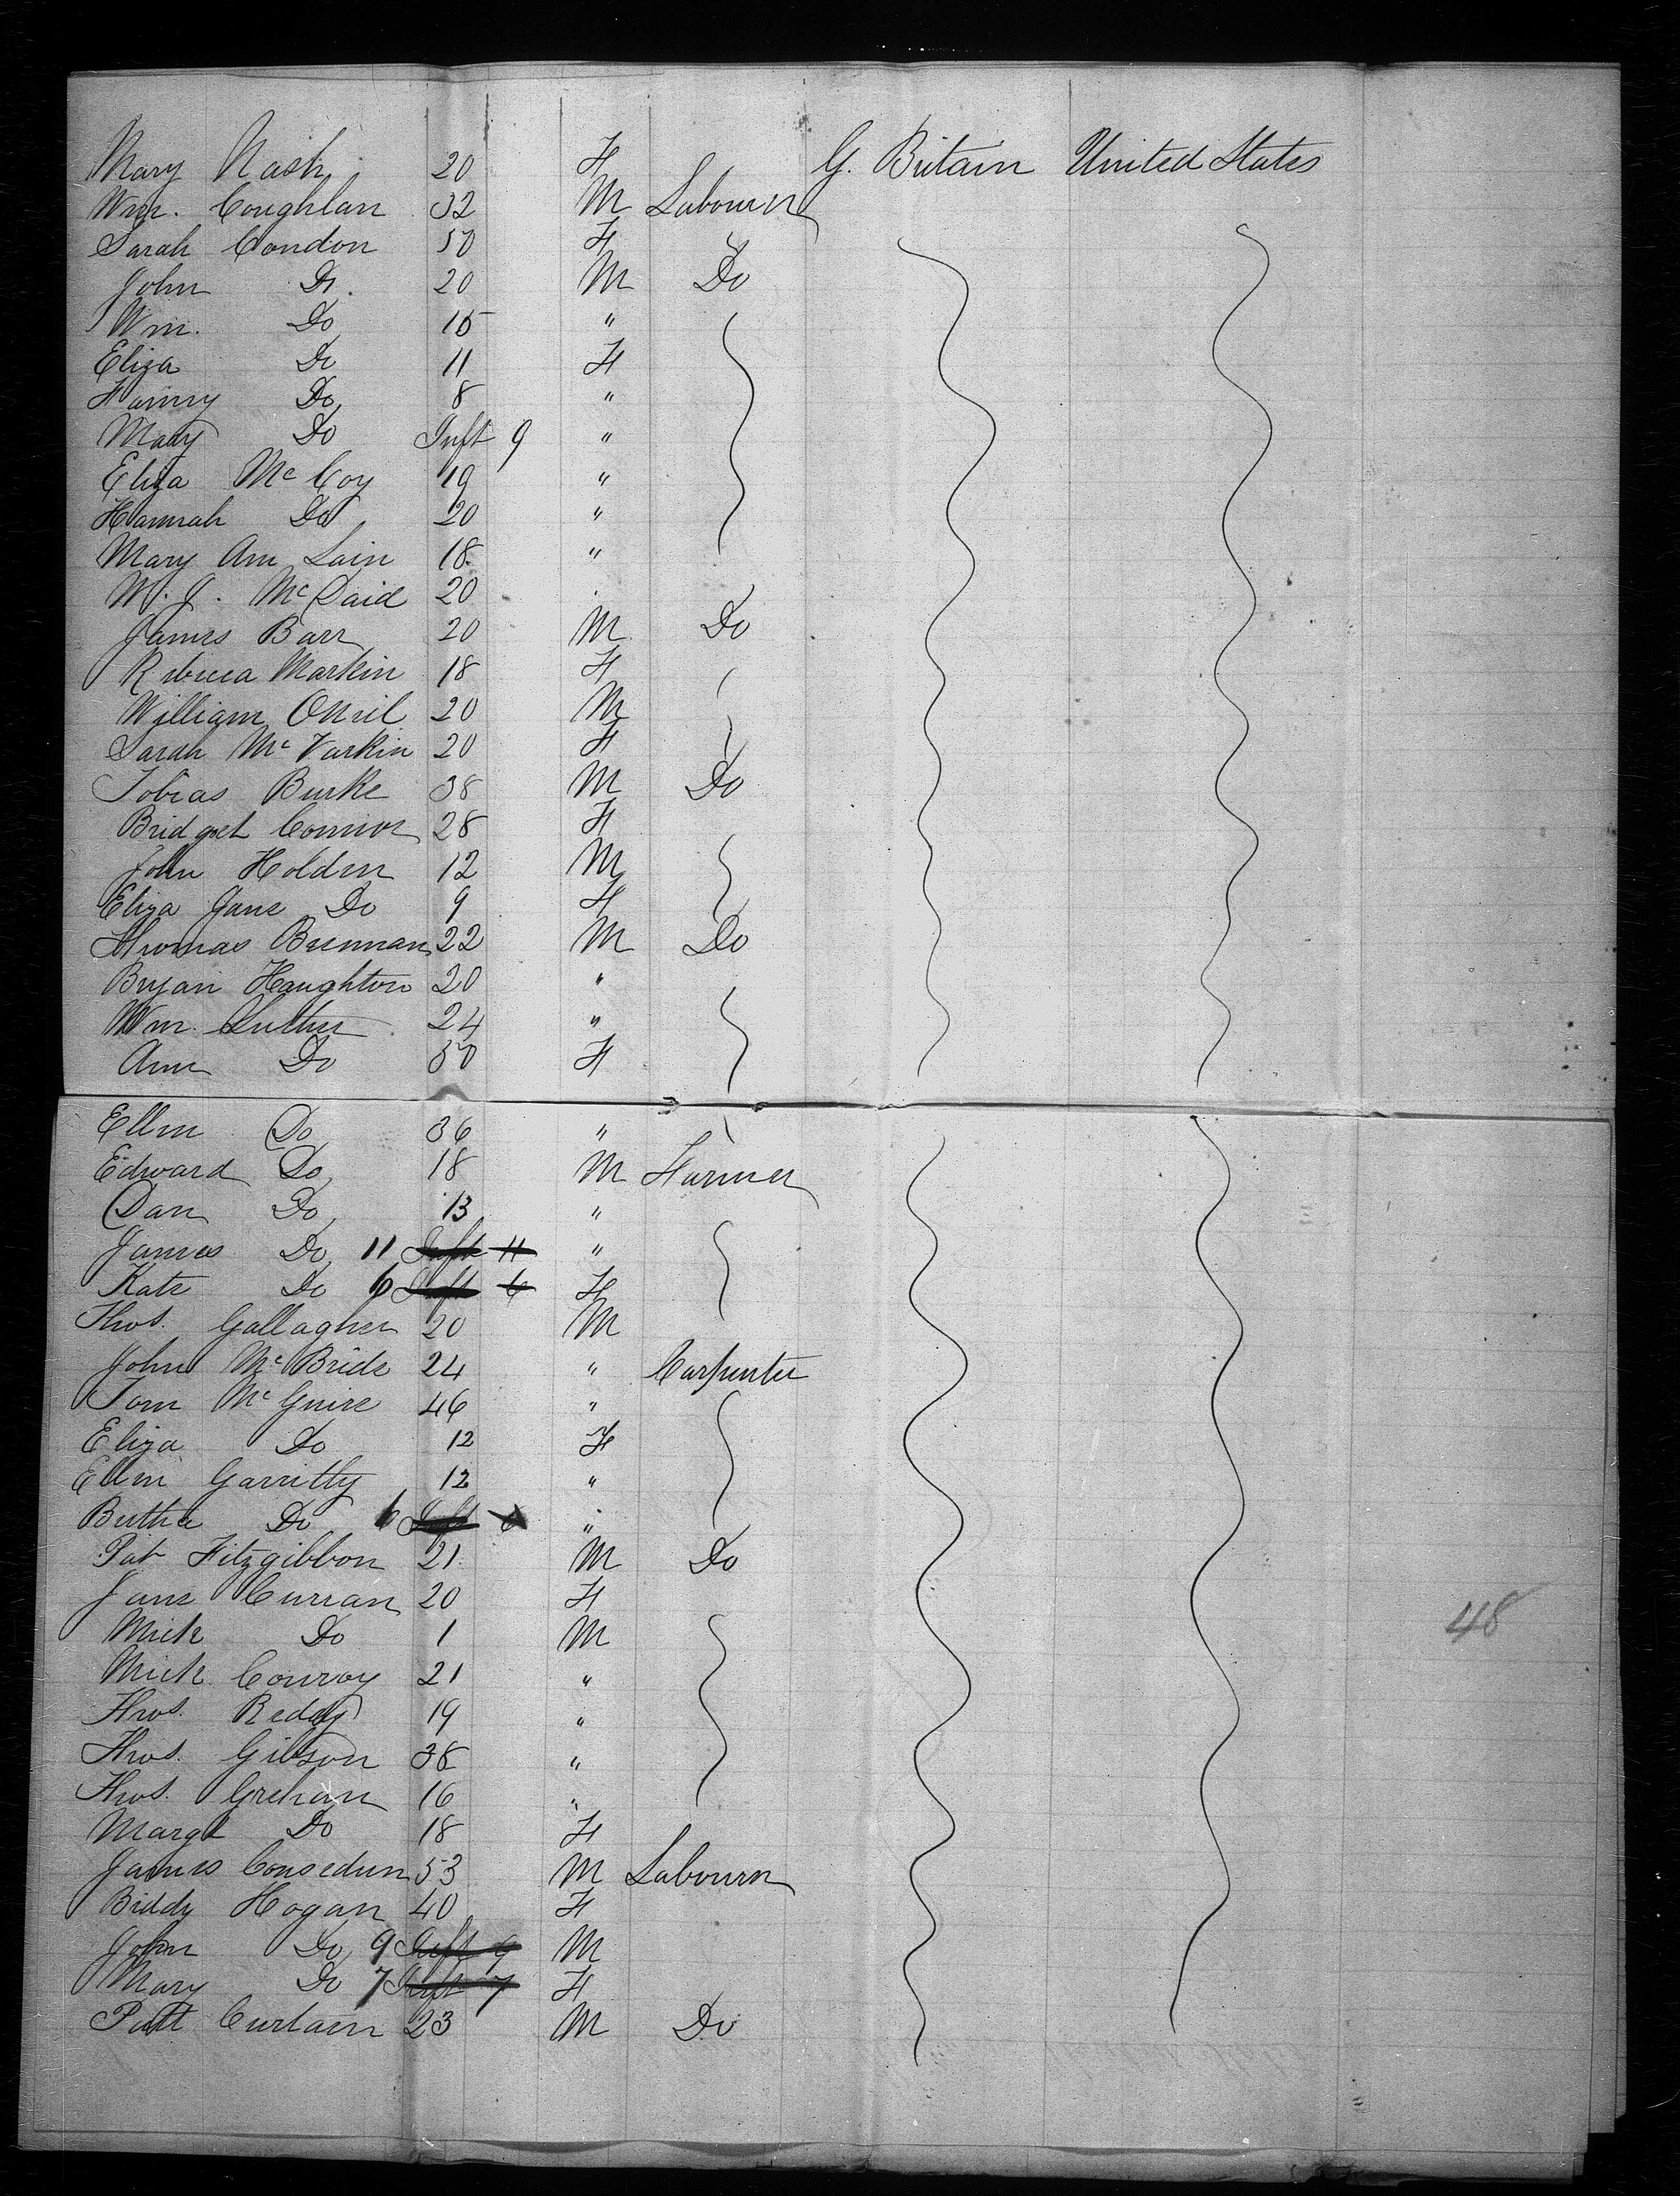 Mary Nash 20 F G. Britain United States
Wm. Coughlan 32 M Labourer
Sarah Condon 50 F
John Do. 20 M Do
Wm. Do 15 "
Eliza Do 11 F
Fanny Do 8 "
Mary Do Inft 9 "
Eliza McCoy 19 "
Hannah Do 20 "
Mary Ann Lain 18 "
M. J. McDaid 20
James Barr 20 M Do
Rebecca Markin 18 F
William ONeil 20 M
Sarah Mc 20 F
Tobias Burke 38 M Do
Bridget Connor 28 F
John Holden 12 M
Eliza Jane Do 9 F
Thomas Brennan 22 M Do
Bryan Haughton 20 "
Wm. 24 "
Ann Do 50 F
Ellen Do 36 "
Edward Do 18 M Farmer
Dan Do 13 "
James Do 11 Inft 11 "
Kate Do 6 Inft 6 F
Thos. Gallagher 20 M
John McBride 24 " Carpenter
Tom McGuire 46 "
Eliza Do 12 F
Ellen Garritty 12 "
Do 6 Inft 6 "
Pat Fitzgibbon 21 M Do
Jane Curran 20 F
Mick Do 1 M
Mick Conroy 21 "
Thos. Reddy 19 "
Thos. Gibson 38 "
Thos. Grehan 16 "
Margt Do 18 F
James Consedun 53 M Labourer
Biddy Hogan 40 F
John Do 9 Inft 9 M
Mary Do 7 Inft 7 F
Patt Curtain 23 M Do
48